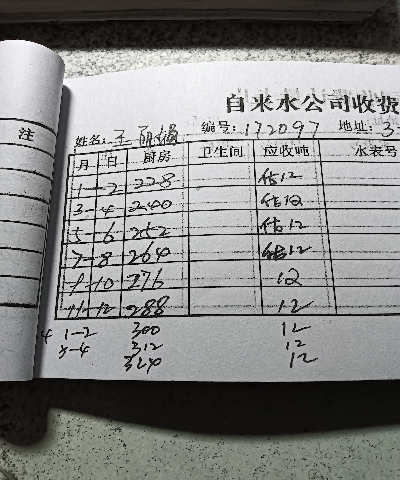 自来水公司收费
注
姓名: 王 编号: 172097 地址: 3
月 日 厨房 卫生间 应收吨 水装号
1-2 228 估12
3-4 240 估12
5-6 252 估12
7-8 264 估12
9-10 276 12
11-12 288 12
4 1-2 300 12
3-4 312 12
324 12